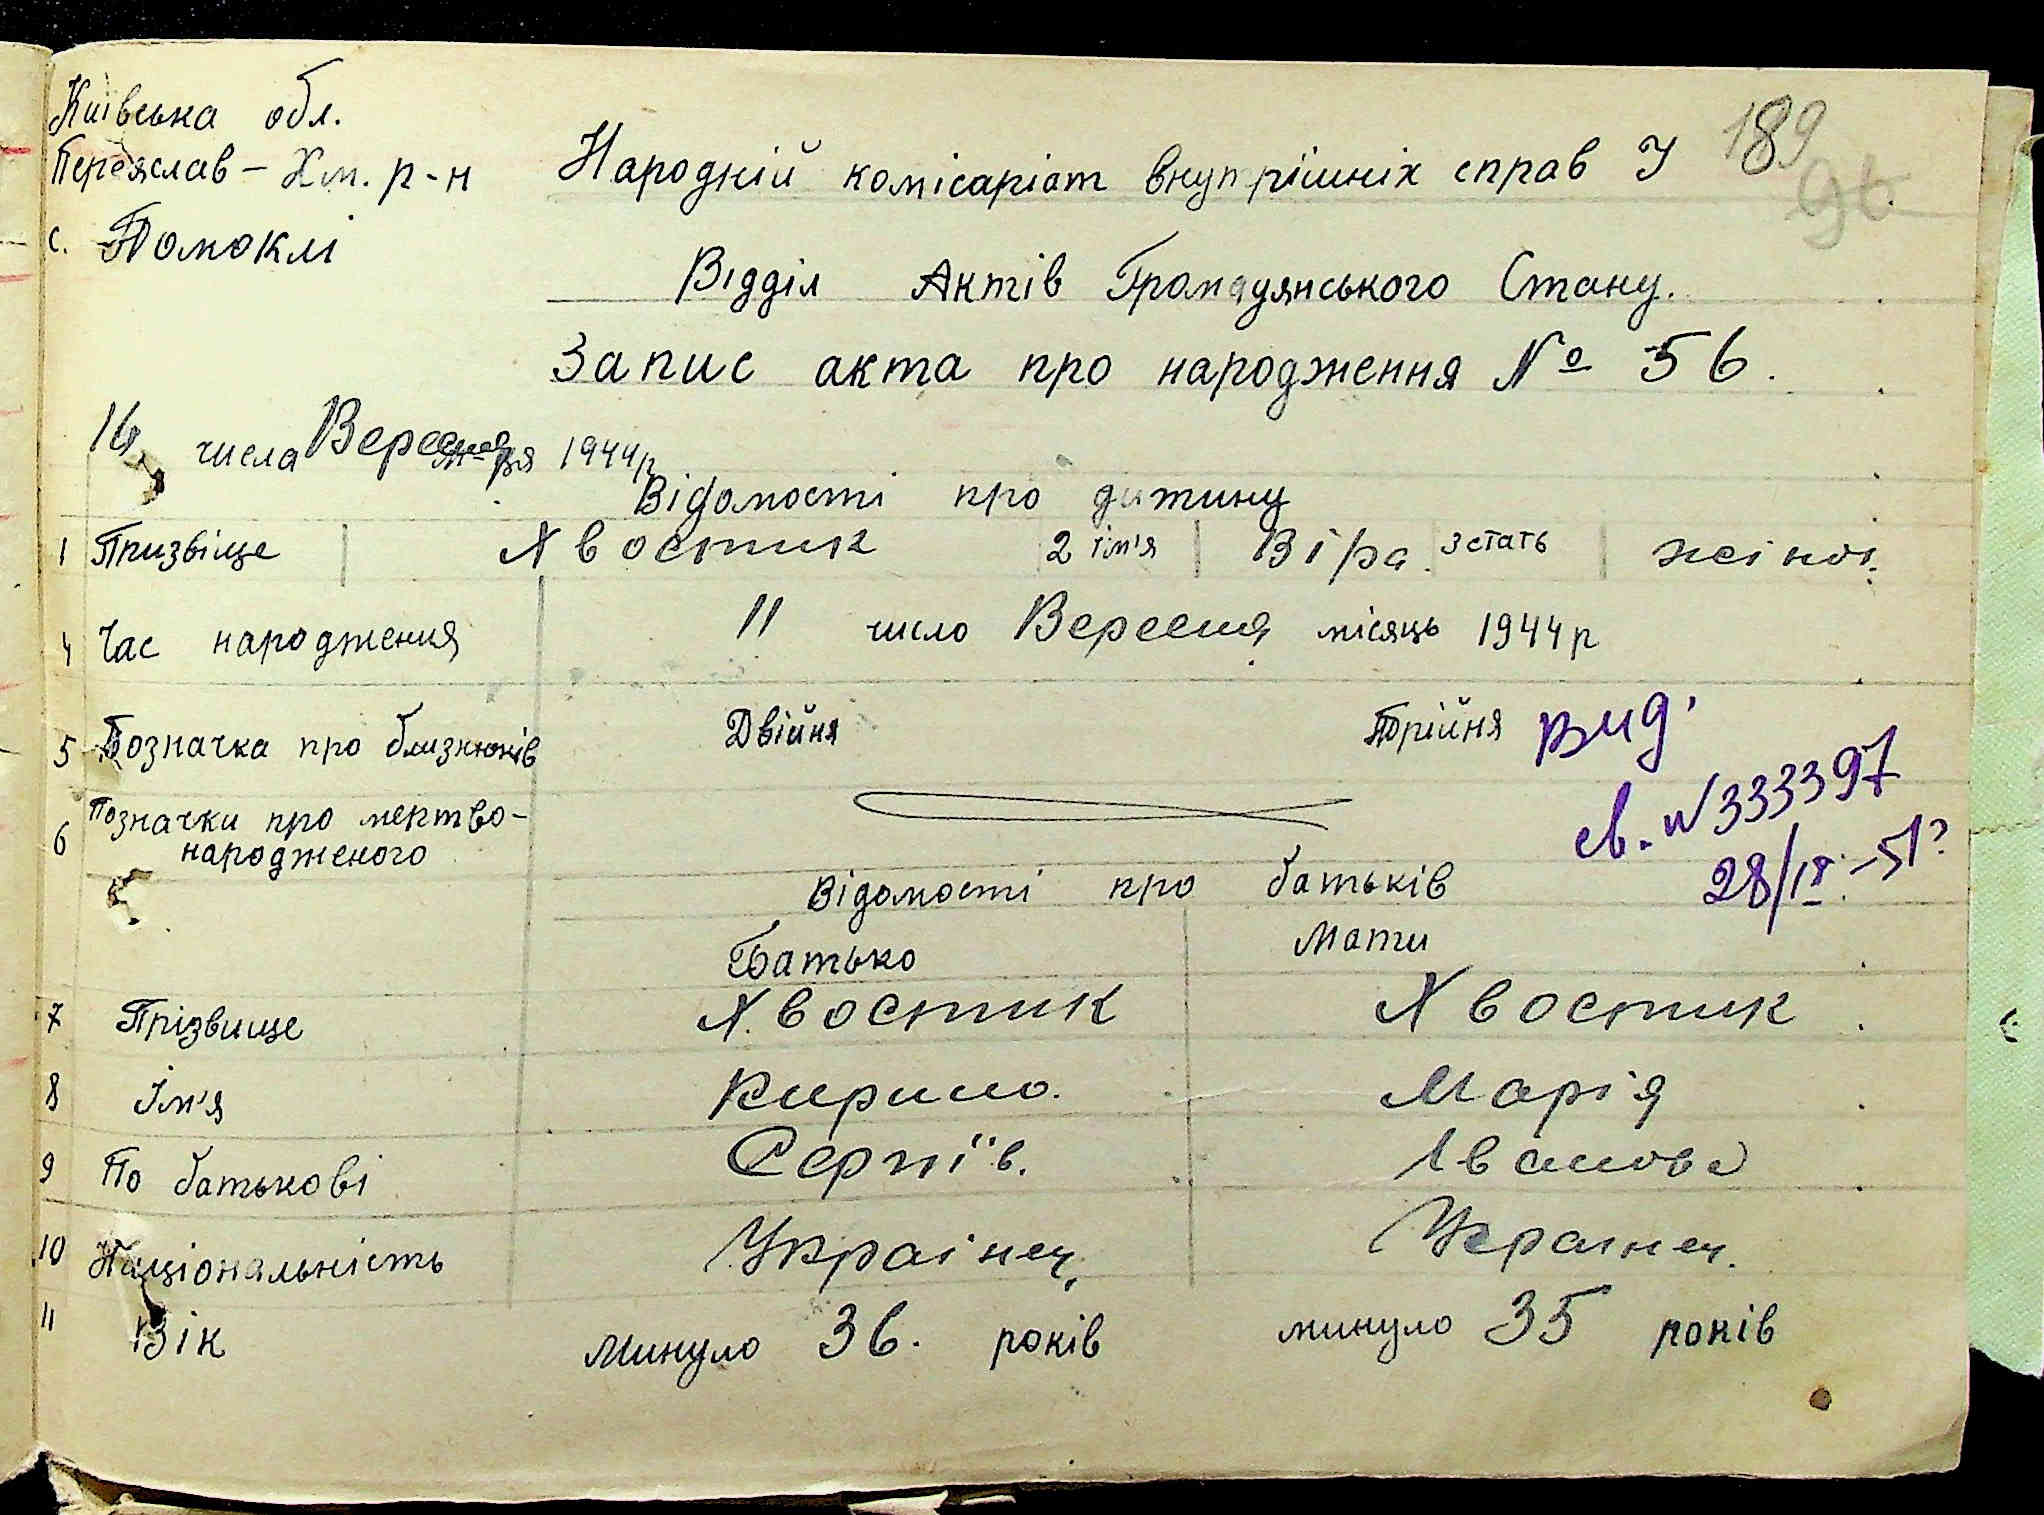 Київська обл.
Переяслав - Хм. р-н
с. Помоклі
189
96
Народній комісаріат внутрішніх справ У
Відділ Актів Громадянського Стану.
Запис акта про народження № 56.
16 числа Вересня 1944р
Відомості про дитину
1 Призвіще Хвостик 2 ім'я Віра 3 стать жіноч.
4 Час народження 11 число Вересня місяць 1944р
5 Позначка про близнюків Двійня Трійня
вид.
св. №333397
28/IX-51г
6 Позначки про мертво-
народженого
Відомості про батьків
Батько Мати
7 Прізвище Хвостик Хвостик
8 Ім'я Кирило. Марія
9 По батькові Сергіїв. Іванова
10 Національність Українец. Українец.
11 Вік минуло 36. років минуло 35 років